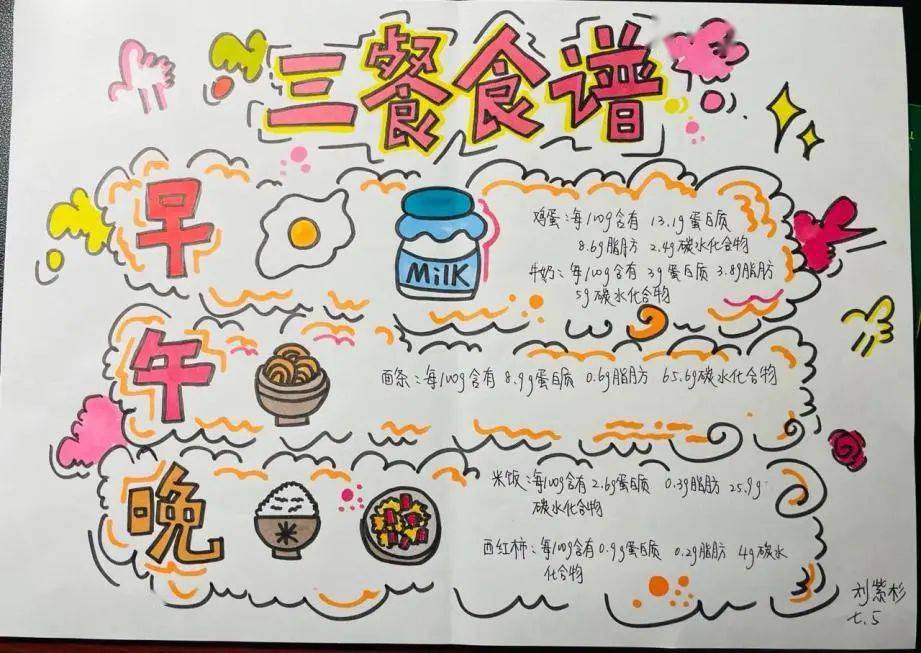 三餐食谱
早
MilK
鸡蛋：每100g含有 13.1g蛋白质
8.6g脂肪 2.4g碳水化合物
牛奶：每100g含有 3g蛋白质 3.8g脂肪
5g碳水化合物
午
面条：每100g含有 8.9g蛋白质 0.6g脂肪 65.6g碳水化合物
晚
米饭：每100g含有2.6g蛋白质 0.3g脂肪 25.9g
碳水化合物
西红柿：每100g含有0.9g蛋白质 0.2g脂肪 4g碳水
化合物
刘紫杉
七.5